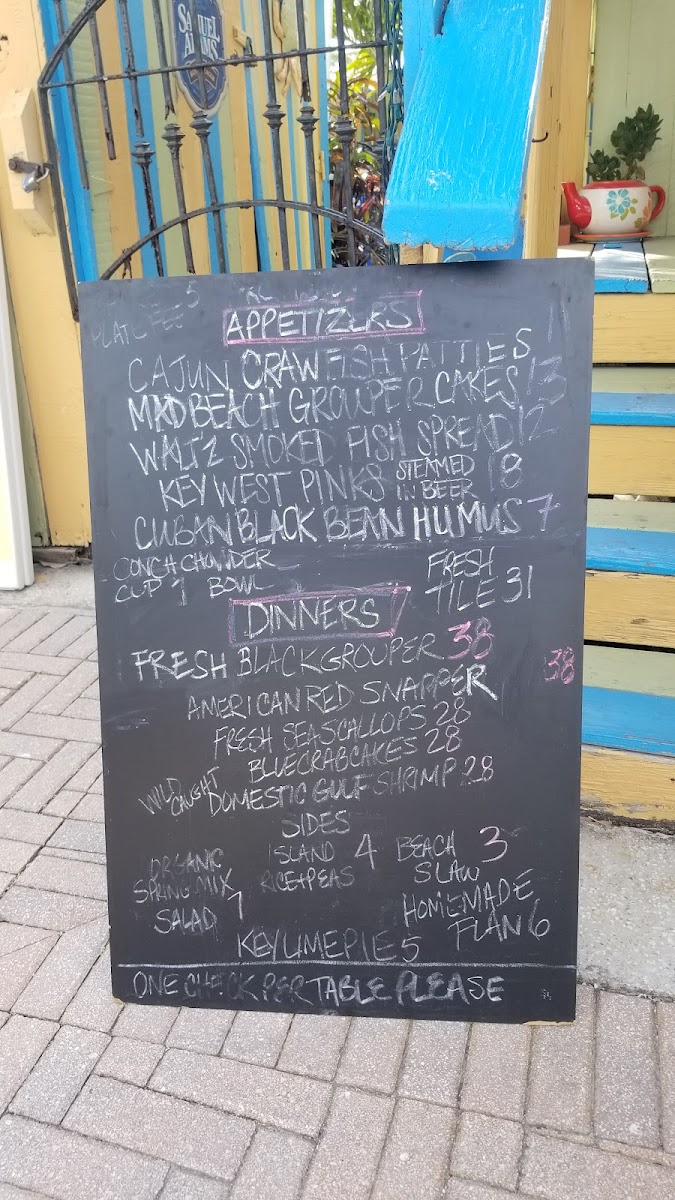 SAMUEL
ADAMS
PLATE FEE 5
APPETIZERS
CAJUN CRAWFISH PATTIES 11
MAD BEACH GROUPER CAKES 13
WALT'Z SMOKED FISH SPREAD 12
KEY WEST PINKS STEAMED IN BEER 18
CUBAN BLACK BEAN HUMUS 7
CONCH CHOWDER
CUP 7 BOWL
FRESH
TILE 31
DINNERS
FRESH BLACK GROUPER 38
AMERICAN RED SNAPPER 38
FRESH SEA SCALLOPS 28
BLUE CRAB CAKES 28
WILD CAUGHT DOMESTIC GULF SHRIMP 28
SIDES
ORGANIC
SPRING MIX
SALAD 7
ISLAND 4
RICE+PEAS
BEACH 3
SLAW
HOMEMADE
FLAN 6
KEY LIME PIE 5
ONE CHECK PER TABLE PLEASE